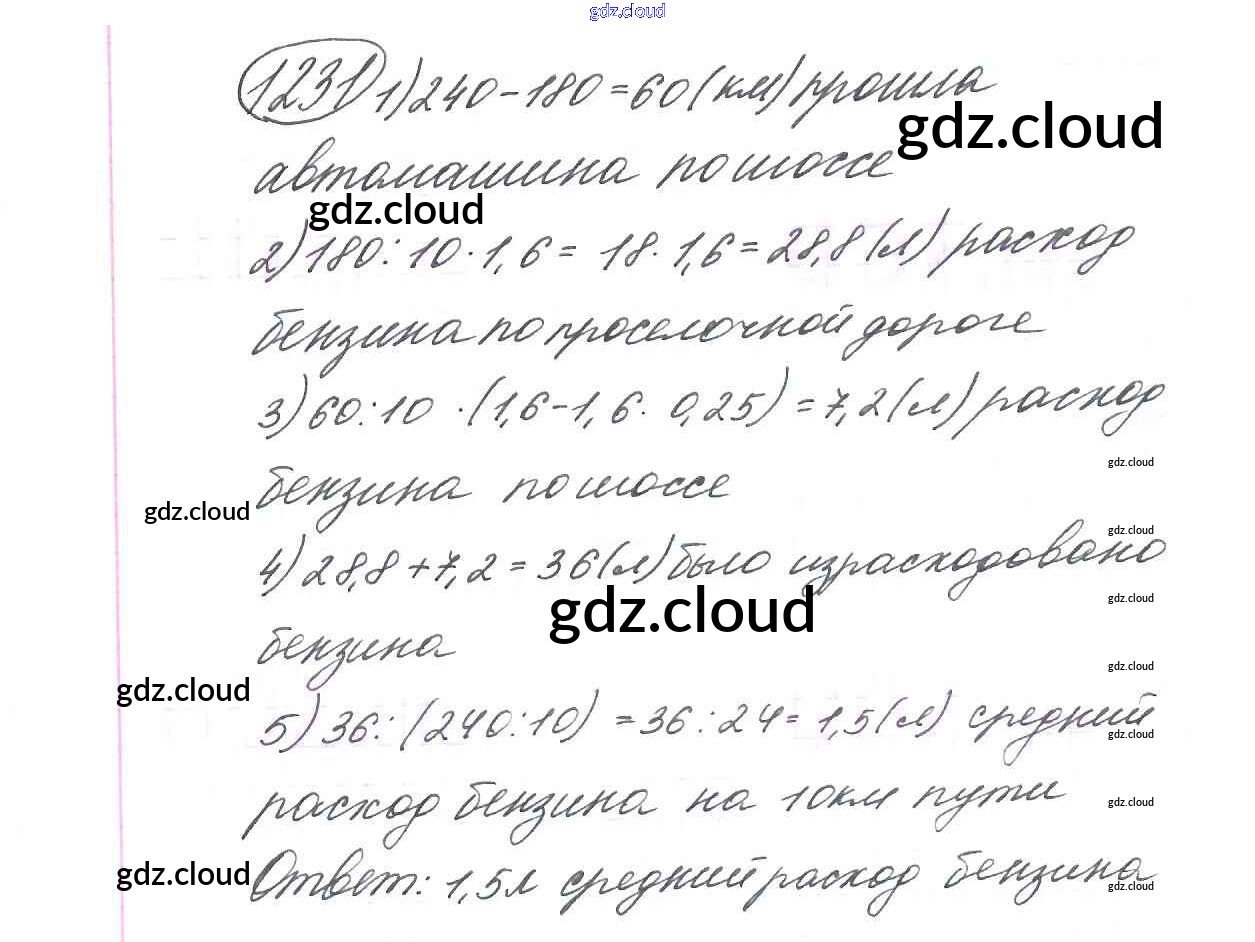 gdz.cloud
1231 1) 240 - 180 = 60 (км) прошла
gdz.cloud
автомашина по шоссе
gdz.cloud
2) 180 : 10 · 1,6 = 18 · 1,6 = 28,8 (л) расход
бензина по проселочной дороге
3) 60 : 10 · (1,6 - 1,6 · 0,25) = 7,2 (л) расход
gdz.cloud
бензина по шоссе
gdz.cloud
gdz.cloud
4) 28,8 + 7,2 = 36 (л) было израсходовано
gdz.cloud
gdz.cloud
бензина
gdz.cloud
gdz.cloud
5) 36 : (240 : 10) = 36 : 24 = 1,5 (л) средний
gdz.cloud
расход бензина на 10 км пути
gdz.cloud
gdz.cloud
Ответ: 1,5 л средний расход бензина
gdz.cloud